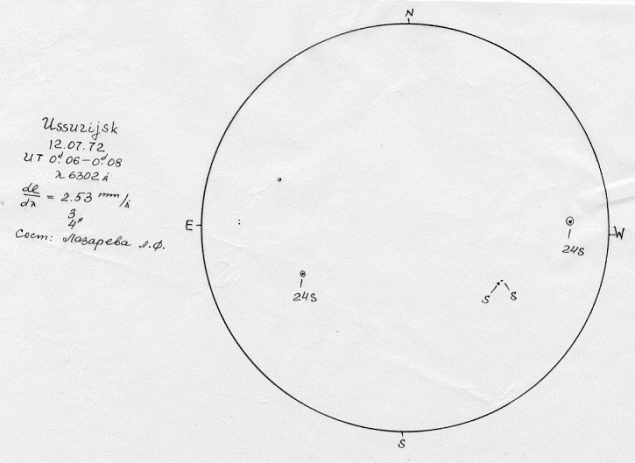 N
Ussurijsk
12.07.72
UT 0ᵈ.06-0ᵈ.08
λ 6302 Å
dl/dλ = 2.53 mm/Å
3
4"
Сост: Лазарева Л.Ф.
E
W
24S
24S
S S
S